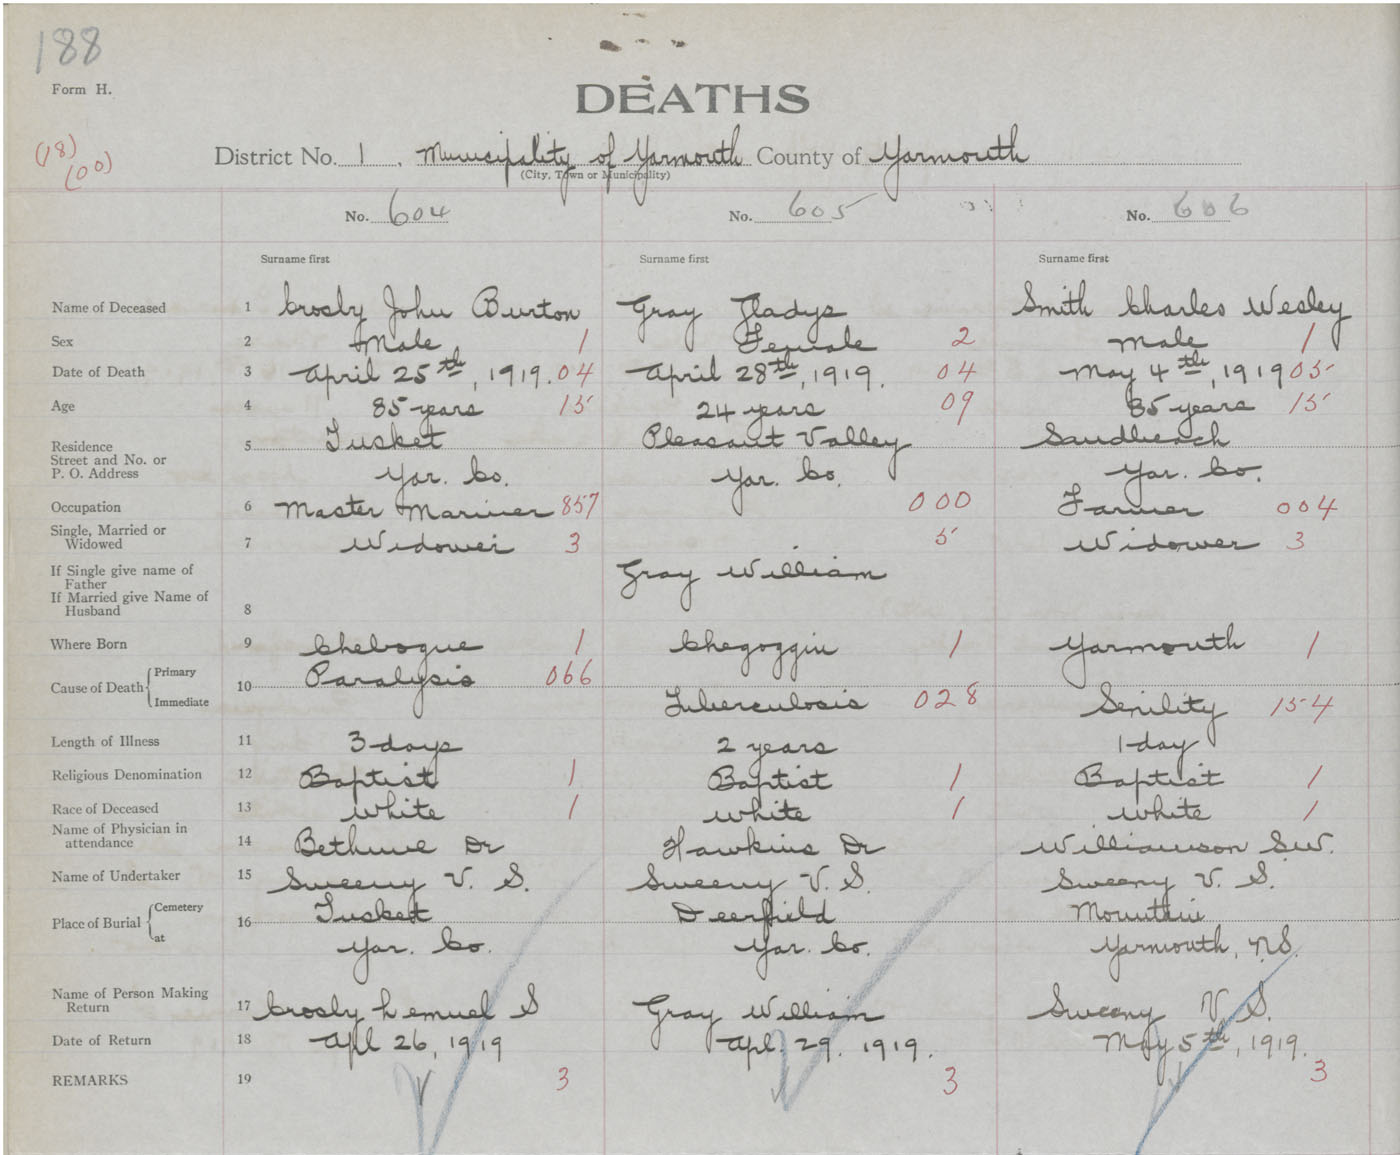 188
Form H.
DEATHS
(18)
(00)
District No. 1, Municipality of Yarmouth County of Yarmouth
(City, Town or Municipality)
No. 604 No. 605 No. 606
Surname first Surname first Surname first
Name of Deceased 1 Crosby John Burton Gray Gladys Smith Charles Wesley
Sex 2 Male 1 Female 2 Male 1
Date of Death 3 April 25th, 1919. 04 April 28th, 1919. 04 May 4th, 1919 05
Age 4 85 years 15 24 years 09 85 years 15
Residence 5 Tusket Pleasant Valley Sandbeach
Street and No. or
P. O. Address Yar. Co. Yar. Co. Yar. Co.
Occupation 6 Master Mariner 857 000 Farmer 004
Single, Married or
Widowed 7 Widower 3 5 Widower 3
If Single give name of Gray William
Father
If Married give Name of
Husband 8
Where Born 9 Chebogue 1 Chegoggin 1 Yarmouth 1
Cause of Death Primary 10 Paralysis 066
Immediate Tuberculosis 028 Senility 154
Length of Illness 11 3 days 2 years 1 day
Religious Denomination 12 Baptist 1 Baptist 1 Baptist 1
Race of Deceased 13 White 1 White 1 White 1
Name of Physician in
attendance 14 Bethune Dr Hawkins Dr Williamson S.W.
Name of Undertaker 15 Sweeny V. S. Sweeny V. S. Sweeny V. S.
Place of Burial Cemetery 16 Tusket Deerfield Mountain
at Yar. Co. Yar. Co. Yarmouth, N.S.
Name of Person Making
Return 17 Crosby Lemuel S Gray William Sweeny V. S.
Date of Return 18 Apl 26, 1919 Apl. 29. 1919. May 5th, 1919.
REMARKS 19 3 3 3